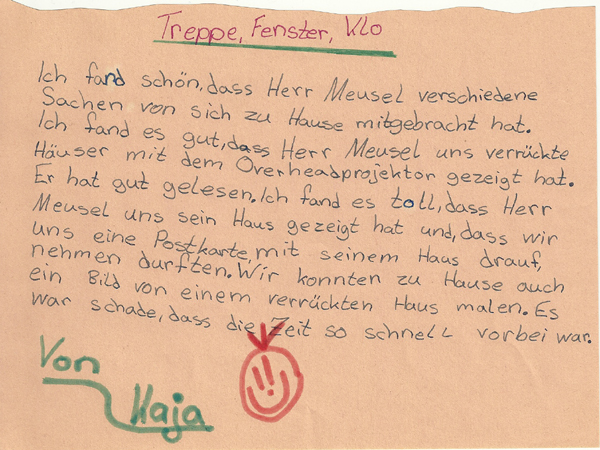 Treppe, Fenster, Klo
Ich fand schön, dass Herr Meusel verschiedene
Sachen von sich zu Hause mitgebracht hat.
Ich fand es gut, dass Herr Meusel uns verrückte
Häuser mit dem Overheadprojektor gezeigt hat.
Er hat gut gelesen. Ich fand es toll, dass Herr
Meusel uns sein Haus gezeigt hat und, dass wir
uns eine Postkarte, mit seinem Haus drauf,
nehmen durften. Wir konnten zu Hause auch
ein Bild von einem verrückten Haus malen. Es
war schade, dass die Zeit so schnell vorbei war.
Von
Kaja